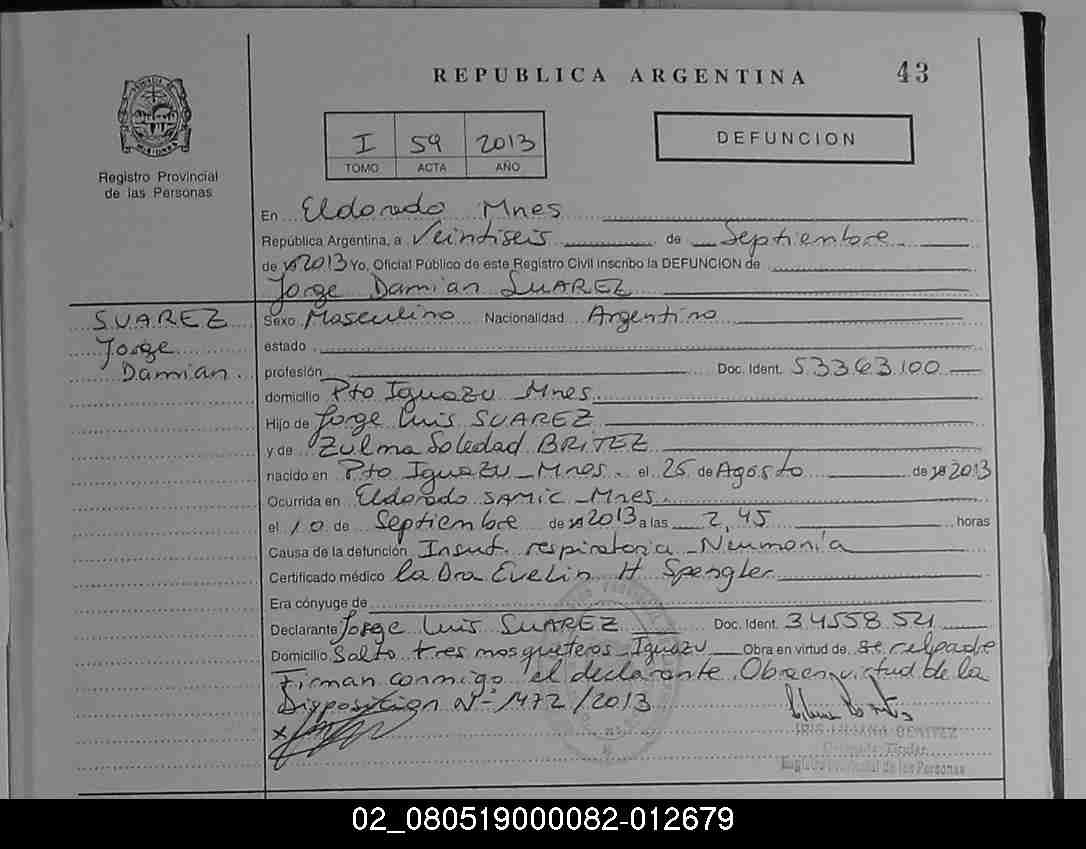 REPUBLICA ARGENTINA
43
I 59 2013
TOMO ACTA AÑO
DEFUNCION
Registro Provincial
de las Personas
En Eldorado Mnes
República Argentina, a Veintiseis de Septiembre
de 2013 Yo, Oficial Público de este Registro Civil inscribo la DEFUNCION de
Jorge Damian SUAREZ
SUAREZ
Jorge
Damian.
Sexo Masculino Nacionalidad Argentino
estado
profesión Doc. Ident. 53363100
domicilio Pto Iguazu Mnes
Hijo de Jorge Luis SUAREZ
y de Zulma Soledad BRITEZ
nacido en Pto Iguazu - Mnes. el 25 de Agosto de 2013
Ocurrida en Eldorado SAMIC - Mnes.
el 10 de Septiembre de 2013 a las 2,45 horas
Causa de la defunción Insuf. respiratoria - Neumonía
Certificado médico la Dra Evelin H Spengler
Era cónyuge de
Declarante Jorge Luis SUAREZ Doc. Ident. 34558521
Domicilio Salto tres mosqueteros - Iguazu Obra en virtud de ser el padre
Firman conmigo el declarante Obra en virtud de la
Disposición Nº 1472/2013
IRIS LILIANA BENITEZ
Delegada Titular
Registro Provincial de las Personas
02_080519000082-012679